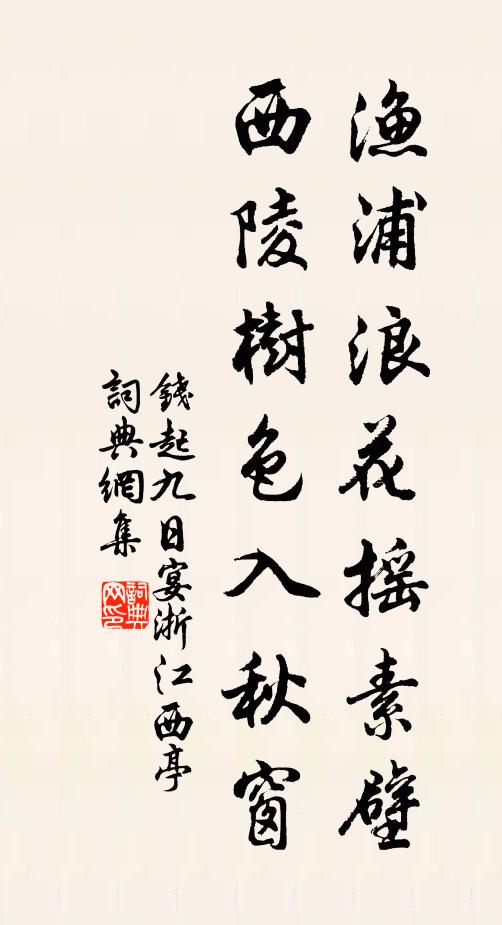 渔浦浪花摇素壁
西陵樹色入秋窗
錢起九日宴浙江西亭
詞典網集
詞典網印